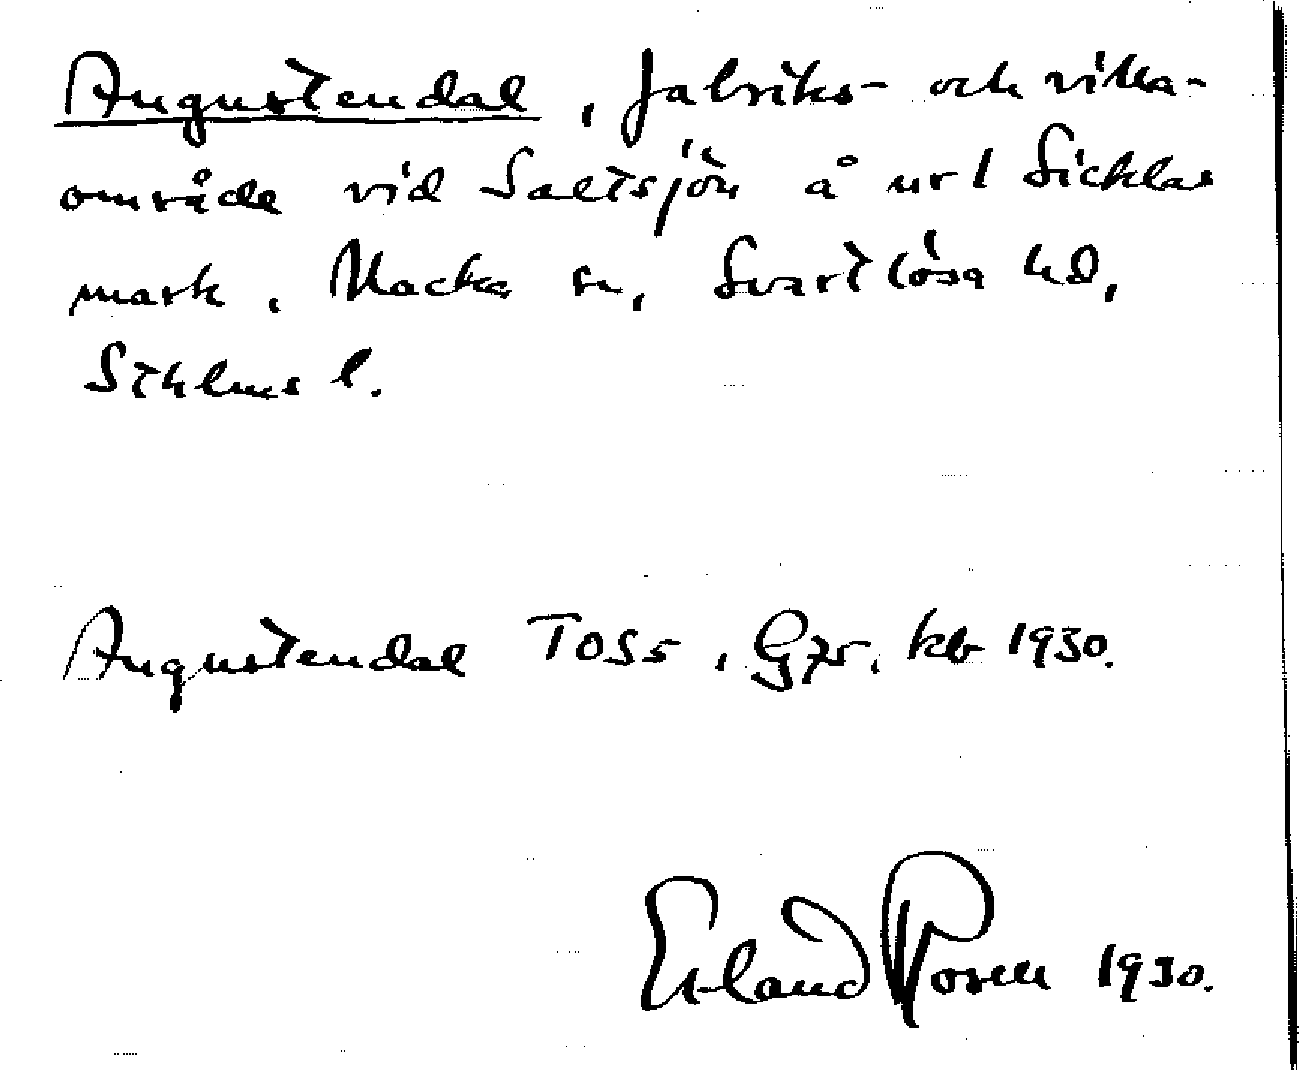 Augustendal, fabriks- och villa-
område vid Saltsjön å urf Sicklas
mark. Nacka sn, Svartlösa hd,
Sthlms l.
Augustendal TOSs, G75. kb 1930.
Erland Rosell 1930.